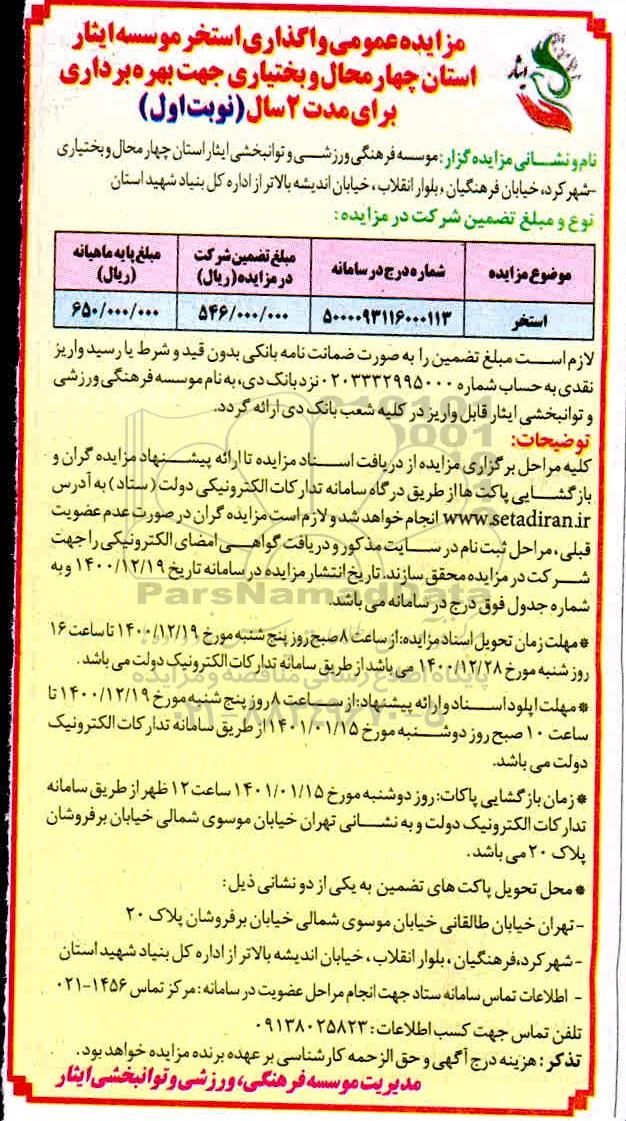 مزایده عمومی واگذاری استخر موسسه ایثار
استان چهارمحال و بختیاری جهت بهره برداری
برای مدت ۲ سال (نوبت اول)
ایثار
نام و نشانی مزایده گزار: موسسه فرهنگی ورزشی و توانبخشی ایثار استان چهارمحال و بختیاری
-شهرکرد، خیابان فرهنگیان، بلوار انقلاب، خیابان اندیشه بالاتر از اداره کل بنیاد شهید استان
نوع و مبلغ تضمین شرکت در مزایده:
موضوع مزایده	شماره درج در سامانه	مبلغ تضمین شرکت در مزایده (ریال)	مبلغ پایه ماهیانه (ریال)
استخر	۵۰۰۰۰۹۳۱۱۶۰۰۰۱۱۳	۵۴۶/۰۰۰/۰۰۰	۶۵۰/۰۰۰/۰۰۰
لازم است مبلغ تضمین را به صورت ضمانت نامه بانکی بدون قید و شرط یا رسید واریز
نقدی به حساب شماره ۰۲۰۳۳۳۲۹۹۵۰۰۰ نزد بانک دی، به نام موسسه فرهنگی ورزشی
و توانبخشی ایثار قابل واریز در کلیه شعب بانک دی ارائه گردد.
توضیحات:
کلیه مراحل برگزاری مزایده از دریافت اسناد مزایده تا ارائه پیشنهاد مزایده گران و
بازگشایی پاکت ها از طریق درگاه سامانه تدارکات الکترونیکی دولت (ستاد) به آدرس
www.setadiran.ir انجام خواهد شد و لازم است مزایده گران در صورت عدم عضویت
قبلی، مراحل ثبت نام در سایت مذکور و دریافت گواهی امضای الکترونیکی را جهت
شرکت در مزایده محقق سازند. تاریخ انتشار مزایده در سامانه تاریخ ۱۴۰۰/۱۲/۱۹ و به
شماره جدول فوق درج در سامانه می باشد.
ParsNamadData
* مهلت زمان تحویل اسناد مزایده: از ساعت ۸ صبح روز پنج شنبه مورخ ۱۴۰۰/۱۲/۱۹ تا ساعت ۱۶
روز شنبه مورخ ۱۴۰۰/۱۲/۲۸ می باشد از طریق سامانه تدارکات الکترونیک دولت می باشد.
پایگاه اطلاع رسانی مناقصه و مزایده
* مهلت اپلود اسناد و ارائه پیشنهاد: از ساعت ۸ روز پنج شنبه مورخ ۱۴۰۰/۱۲/۱۹ تا
ساعت ۱۰ صبح روز دوشنبه مورخ ۱۴۰۱/۰۱/۱۵ از طریق سامانه تدارکات الکترونیک
دولت می باشد.
* زمان بازگشایی پاکات: روز دوشنبه مورخ ۱۴۰۱/۰۱/۱۵ ساعت ۱۲ ظهر از طریق سامانه
تدارکات الکترونیک دولت و به نشانی تهران خیابان موسوی شمالی خیابان برفروشان
پلاک ۲۰ می باشد.
* محل تحویل پاکت های تضمین به یکی از دو نشانی ذیل:
- تهران خیابان طالقانی خیابان موسوی شمالی خیابان برفروشان پلاک ۲۰
- شهرکرد، فرهنگیان، بلوار انقلاب، خیابان اندیشه بالاتر از اداره کل بنیاد شهید استان
- اطلاعات تماس سامانه ستاد جهت انجام مراحل عضویت در سامانه: مرکز تماس ۱۴۵۶-۰۲۱
تلفن تماس جهت کسب اطلاعات: ۰۹۱۳۸۰۲۵۸۲۳
تذکر: هزینه درج آگهی و حق الزحمه کارشناسی بر عهده برنده مزایده خواهد بود.
مدیریت موسسه فرهنگی، ورزشی و توانبخشی ایثار